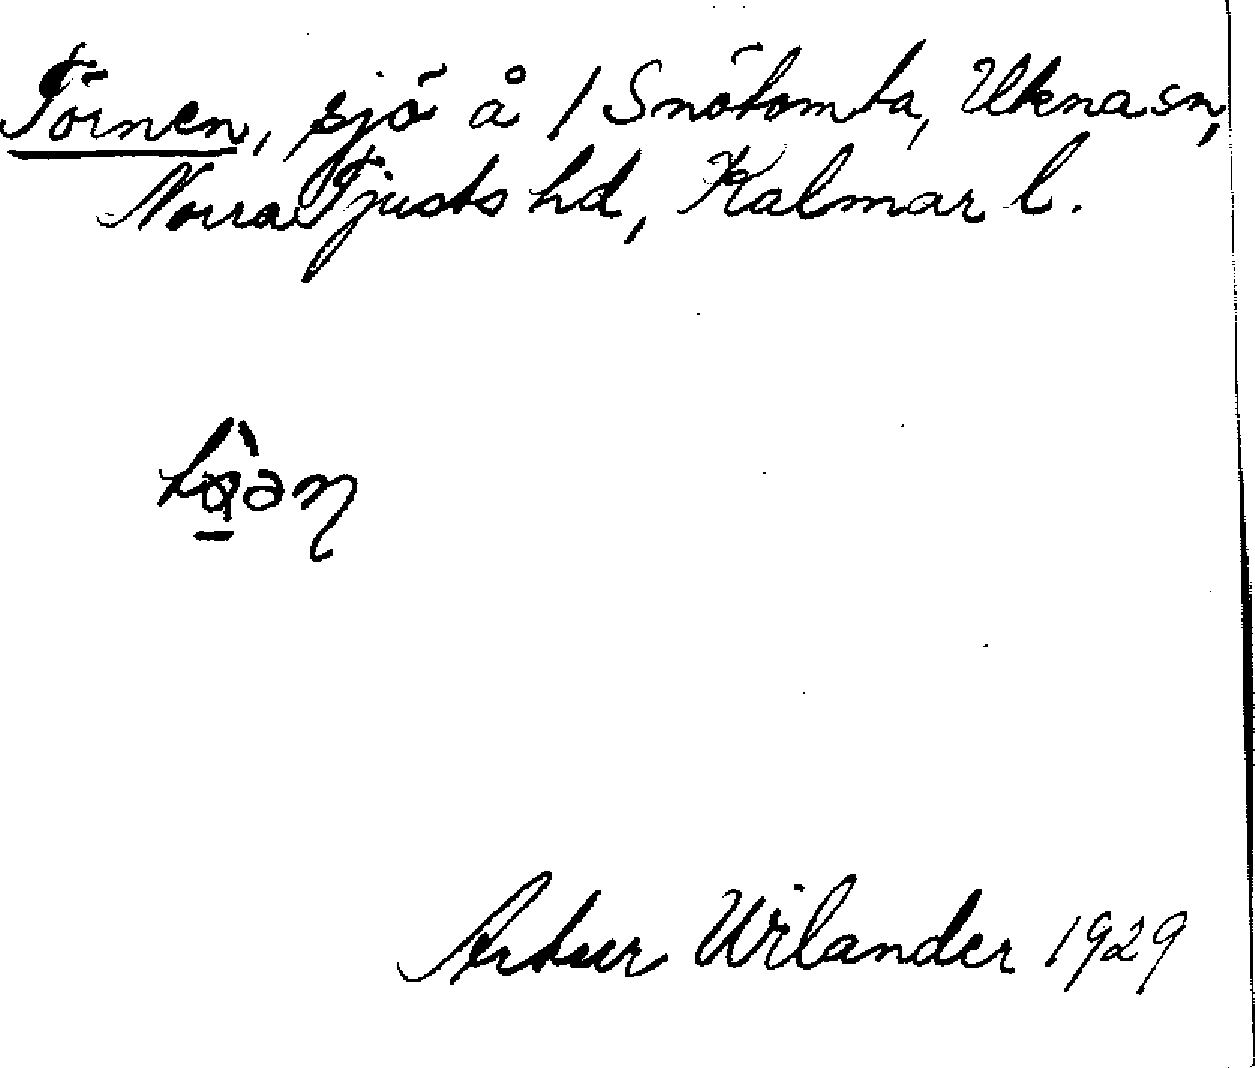 Törnen, sjö å 1 Snötomta, Ukna sn,
Norra Tjusts hd, Kalmar l.
Artur Wilander 1929